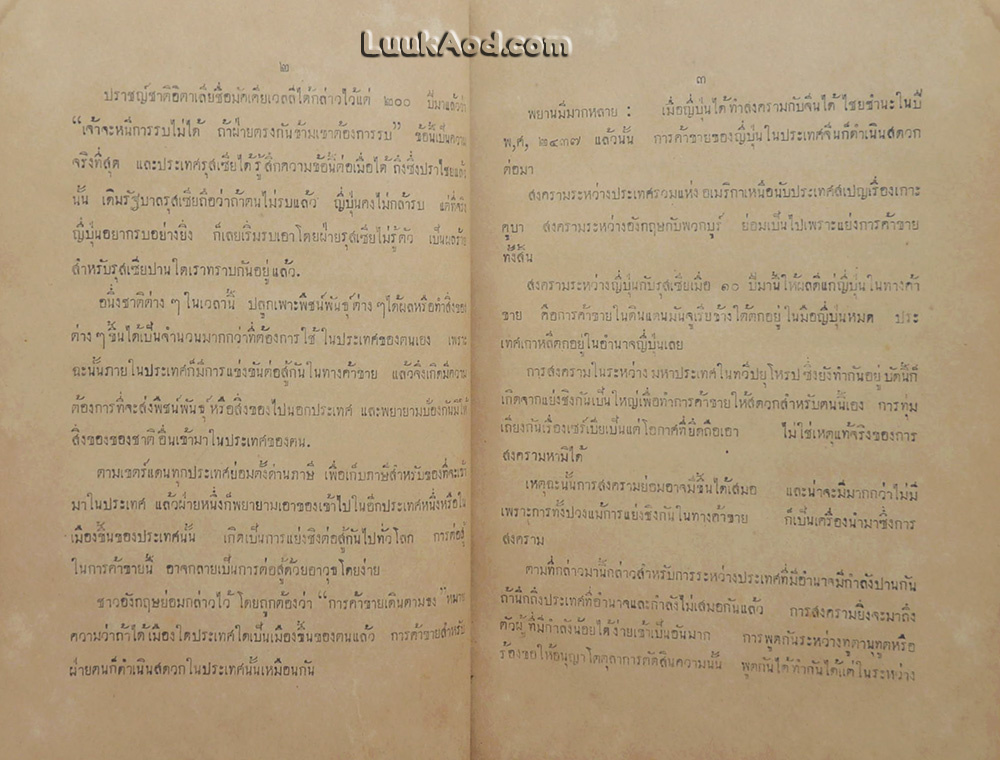 LuukAod.com
๒
ปราชญ์ชาติอิตาเลียชื่อมัคเคียเวลลีได้กล่าวไว้แต่ ๒๐๐ ปีมาแล้วว่า
“เจ้าจะหนีการรบไม่ได้ ถ้าฝ่ายตรงกันข้ามเขาต้องการรบ” ข้อนี้เป็นความ
จริงที่สุด และประเทศรุสเซียได้รู้สึกความข้อนี้ต่อเมื่อได้ถึงซึ่งปราไชยแล้ว
นั้น เดิมรัฐบาลรุสเซียถือว่าถ้าตนไม่รบแล้ว ญี่ปุ่นคงไม่กล้ารบ แต่ที่จริง
ญี่ปุ่นอยากรบอย่างยิ่ง ก็เลยเริ่มรบเอาโดยฝ่ายรุสเซียไม่รู้ตัว เป็นผลร้าย
สำหรับรุสเซียปานใดเราทราบกันอยู่แล้ว.
อนึ่งชาติต่าง ๆ ในเวลานี้ ปลูกเพาะพืชน์พันธุ์ต่าง ๆ ได้ผลหรือทำสิ่งของ
ต่าง ๆ ขึ้นได้เป็นจำนวนมากกว่าที่ต้องการใช้ในประเทศของตนเอง เพราะ
ฉะนั้นภายในประเทศก็มีการแข่งขันต่อสู้กันในทางค้าขาย แล้วจึ่งเกิดมีความ
ต้องการที่จะส่งพืชน์พันธุ์หรือสิ่งของไปนอกประเทศ และพยายามป้องกันมิให้
สิ่งของของชาติอื่นเข้ามาในประเทศของตน.
ตามเขตร์แดนทุกประเทศย่อมตั้งด่านภาษี เพื่อเก็บภาษีสำหรับของที่จะเข้า
มาในประเทศ แล้วฝ่ายหนึ่งก็พยายามเอาของเข้าไปในอีกประเทศหนึ่งหรือใน
เมืองขึ้นของประเทศนั้น เกิดเป็นการแย่งชิงต่อสู้กันไปทั่วโลก การต่อสู้
ในการค้าขายนี้ อาจกลายเป็นการต่อสู้ด้วยอาวุธโดยง่าย
ชาวอังกฤษย่อมกล่าวไว้โดยถูกต้องว่า “การค้าขายเดินตามธง” หมาย
ความว่าถ้าได้เมืองใดประเทศใดเป็นเมืองขึ้นของตนแล้ว การค้าขายสำหรับ
ฝ่ายตนก็ดำเนินสดวกในประเทศนั้นเหมือนกัน
๓
พยานมีมากหลาย : เมื่อญี่ปุ่นได้ทำสงครามกับจีนได้ไชยชำนะในปี
พ,ศ, ๒๔๓๗ แล้วนั้น การค้าขายของญี่ปุ่นในประเทศจีนก็ดำเนินสดวก
ต่อมา
สงครามระหว่างประเทศรวมแห่งอเมริกาเหนือนับประเทศสเปญเรื่องเกาะ
คูบา สงครามระหว่างอังกฤษกับพวกบูร์ ย่อมเป็นไปเพราะแย่งการค้าขาย
ทั้งสิ้น
สงครามระหว่างญี่ปุ่นกับรุสเซียเมื่อ ๑๐ ปีมานี้ให้ผลดีแก่ญี่ปุ่นในทางค้า
ขาย คือการค้าขายในดินแดนมันจูเรียข้างใต้ตกอยู่ในมือญี่ปุ่นหมด ประ
เทศเกาหลีตกอยู่ในอำนาจญี่ปุ่นเลย
การสงครามในระหว่างมหาประเทศในทวีปยุโหรป ซึ่งยังทำกันอยู่บัดนี้ก็
เกิดจากแย่งชิงกันเป็นใหญ่เพื่อทำการค้าขายให้สดวกสำหรับตนนั้เอง การทุ่ม
เถียงกันเรื่องเซร์เบียเป็นแต่โอกาศที่ยึดถือเอา ไม่ใช่เหตุแท้จริงของการ
สงครามหามิได้
เหตุฉะนั้นการสงครามย่อมอาจมีขึ้นได้เสมอ และน่าจะมีมากกว่าไม่มี
เพราะการทั้งปวงแม้การแย่งชิงกันในทางค้าขาย ก็เป็นเครื่องนำมาซึ่งการ
สงคราม
ตามที่กล่าวมานี้กล่าวสำหรับการระหว่างประเทศที่มีอำนาจมีกำลังปานกัน
ถ้านึกถึงประเทศที่อำนาจและกำลังไม่เสมอกันแล้ว การสงครามยิ่งจะมาถึง
ตัวผู้ที่มีกำลังน้อยได้ง่ายเข้าเป็นอันมาก การพูดกันระหว่างทูตานุทูตหรือ
ร้องขอให้อนุญาโตตุลาการตัดสินความนั้น พูดกันได้ทำกันได้แต่ในระหว่าง